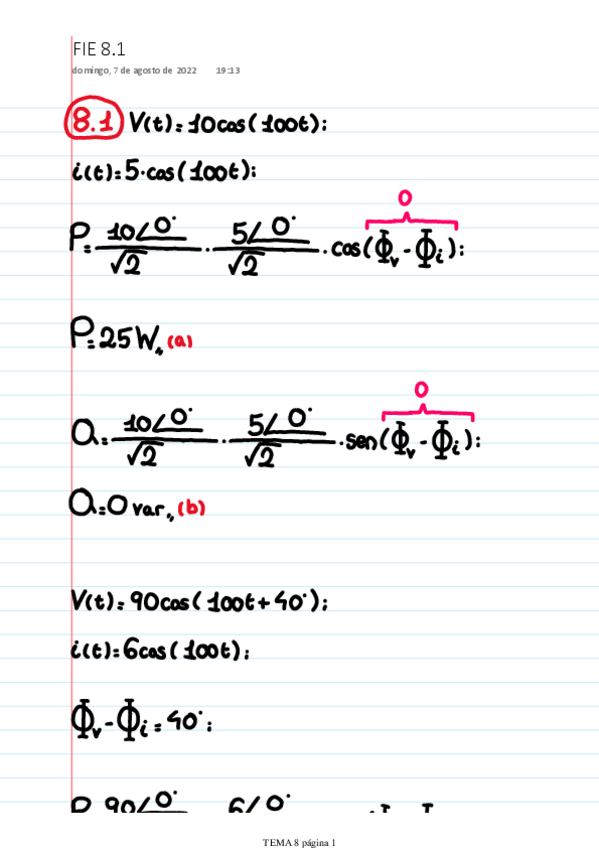 FIE 8.1
domingo, 7 de agosto de 2022 19:13
8.1 V(t)=10cos(100t);
i(t)=5·cos(100t);
0
P= 10∠0°/√2 · 5∠0°/√2 ·cos(Φv-Φi);
P=25W,, (a)
0
Q= 10∠0°/√2 · 5∠0°/√2 ·sen(Φv-Φi);
Q=0 var,, (b)
V(t)=90cos(100t+40°);
i(t)=6cos(100t);
Φv-Φi=40°;
P 90∠0° 6∠0°
TEMA 8 página 1